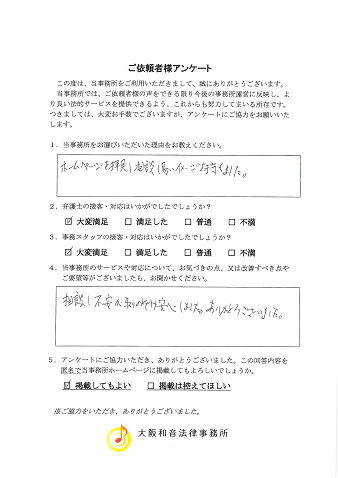 ご依頼者様アンケート
この度は、当事務所をご利用いただきまして、誠にありがとうございます。
当事務所では、ご依頼者様の声をできる限り今後の事務所運営に反映し、よ
り良い法的サービスを提供できるよう、これからも努力してまいる所存です。
つきましては、大変お手数でございますが、アンケートにご協力をお願いいた
します。
1．当事務所をお選びいただいた理由をお教えください。
ホームページを拝見し相談し易いイメージを持ちました。
2．弁護士の接客・対応はいかがでしたでしょうか？
☑ 大変満足 □ 満足した □ 普通 □ 不満
3．事務スタッフの接客・対応はいかがでしたでしょうか？
☑ 大変満足 □ 満足した □ 普通 □ 不満
4．当事務所のサービスや対応について、お気づきの点、又は改善すべき点や
ご要望等がございましたら、お聞かせください。
相談し不安が取り ました。ありがとうございました。
5．アンケートにご協力いただき、ありがとうございました。この回答内容を
匿名で当事務所ホームページに掲載してもよろしいでしょうか。
☑ 掲載してもよい □ 掲載は控えてほしい
※ご協力をいただき、ありがとうございました。
大阪和音法律事務所